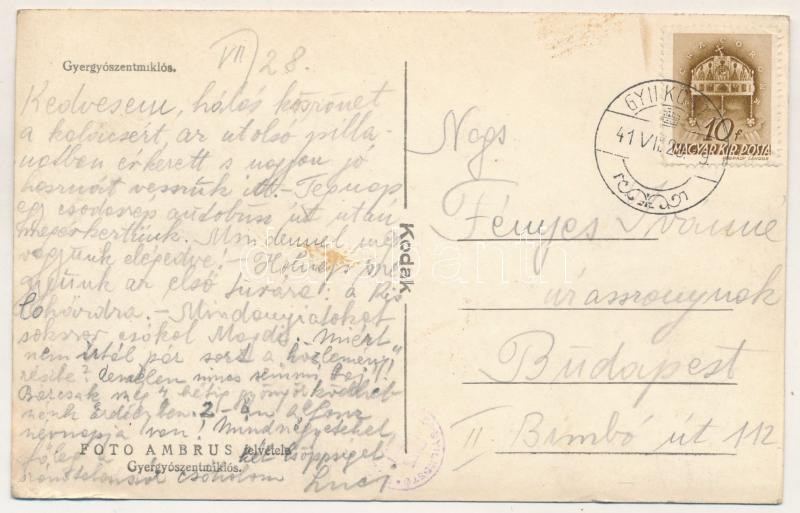 Gyergyószentmiklós.
VII 28.
Kedvesem, hálás köszönet
a kölcsért az utolsó pilla-
natban érkezett s nagyon jó
hasznát vesszük itt. - Tegnap
egy csodaszép autobusz út után
megérkeztünk. Mindennel meg
vagyunk elégedve! - Holnap me-
gyünk az első túrára: a Kis
Cohárdra. - Mindanyiatokat
sokszor csókol Magda. Miért
nem írtál pár sort a "közlemény"
részbe? Remélem nincs semmi baj!
Bárcsak még 4 hétig gyönyörködhet-
nénk Erdélyben. 2-án Alfonz
névnapja van! Mindnyájatokat
főleg a két csöppséget
számtalanszor csókolom Luci
FOTO AMBRUS felvétele
Gyergyószentmiklós.
Kodak
10 f
MAGYAR KIR. POSTA
41 VII. 28
Nags.
Fényes Ivánné
úrasszonynak
Budapest
II Bimbó út 112